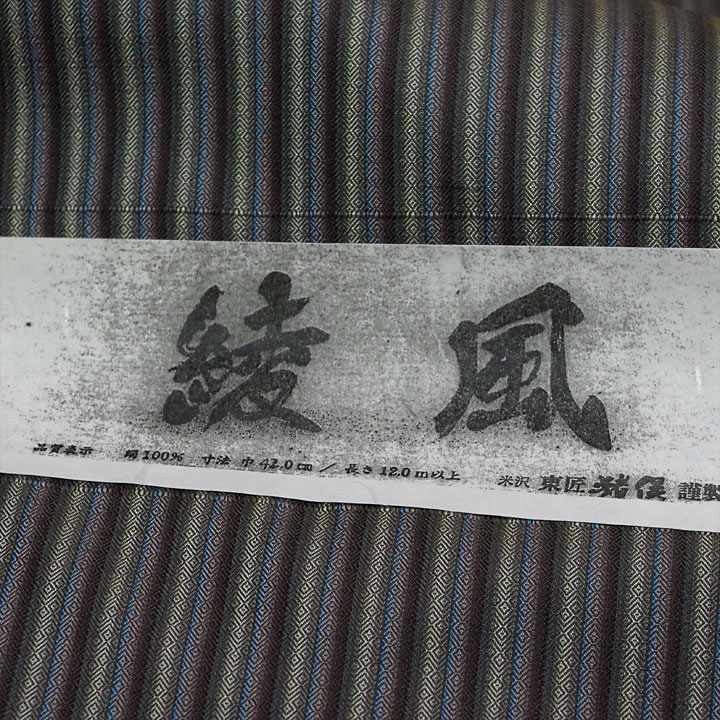 綾風
品質表示 綿100% 寸法 巾 42.0cm / 長さ 12.0m以上 米沢 東匠 猪俣 謹製